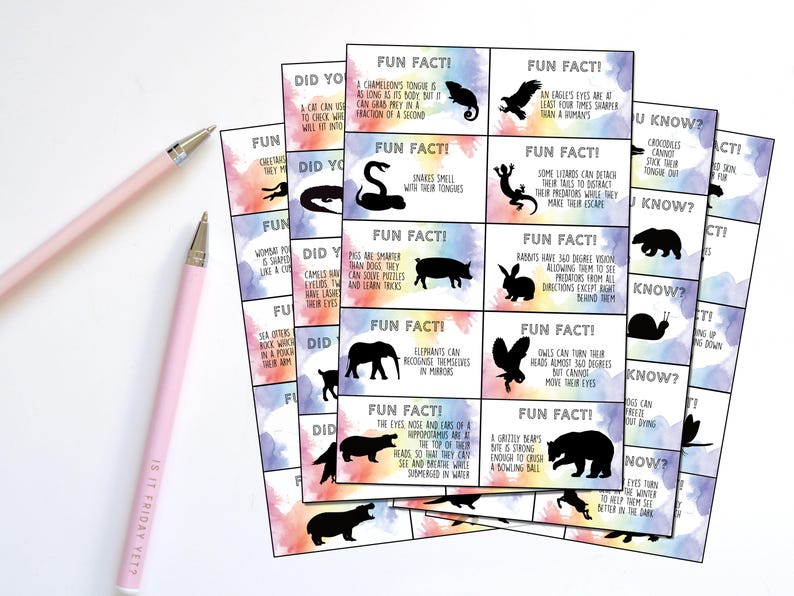 FUN FACT!
A CHAMELEON'S TONGUE IS
AS LONG AS ITS BODY, BUT IT
CAN GRAB PREY IN A
FRACTION OF A SECOND
FUN FACT!
AN EAGLE'S EYES ARE AT
LEAST FOUR TIMES SHARPER
THAN A HUMAN'S
FUN FACT!
SNAKES SMELL
WITH THEIR TONGUES
FUN FACT!
SOME LIZARDS CAN DETACH
THEIR TAILS TO DISTRACT
THEIR PREDATORS WHILE THEY
MAKE THEIR ESCAPE
FUN FACT!
PIGS ARE SMARTER
THAN DOGS, THEY
CAN SOLVE PUZZLES
AND LEARN TRICKS
FUN FACT!
RABBITS HAVE 360 DEGREE VISION
ALLOWING THEM TO SEE
PREDATORS FROM ALL
DIRECTIONS EXCEPT RIGHT
BEHIND THEM
FUN FACT!
ELEPHANTS CAN
RECOGNISE THEMSELVES
IN MIRRORS
FUN FACT!
OWLS CAN TURN THEIR
HEADS ALMOST 360 DEGREES
BUT CANNOT
MOVE THEIR EYES
FUN FACT!
THE EYES, NOSE AND EARS OF A
HIPPOPOTAMUS ARE AT
THE TOP OF THEIR
HEADS, SO THAT THEY CAN
SEE AND BREATHE WHILE
SUBMERGED IN WATER
FUN FACT!
A GRIZZLY BEAR'S
BITE IS STRONG
ENOUGH TO CRUSH
A BOWLING BALL
DID YOU
A CAT CAN USE
TO CHECK WHE
WILL FIT INTO
DID YOU
DID YOU
CAMELS HAVE
EYELIDS, TW
HAVE LASHES
THEIR EYES
DID YOU
FUN
CHEETAHS
THEY M
FUN
WOMBAT POO
IS SHAPED
LIKE A CUB
FUN
SEA OTTERS
ROCK WHICH
IN A POUCH
THEIR ARM
FUN
FUN
OU KNOW?
CROCODILES
CANNOT
STICK THEIR
TONGUE OUT
U KNOW?
KNOW?
KNOW?
OGS CAN
FREEZE
OUT DYING
KNOW?
EYES TURN
IN THE WINTER
TO HELP THEM SEE
BETTER IN THE DARK
T!
ED SKIN,
FUR
ING UP
NG DOWN
IS IT FRIDAY YET?